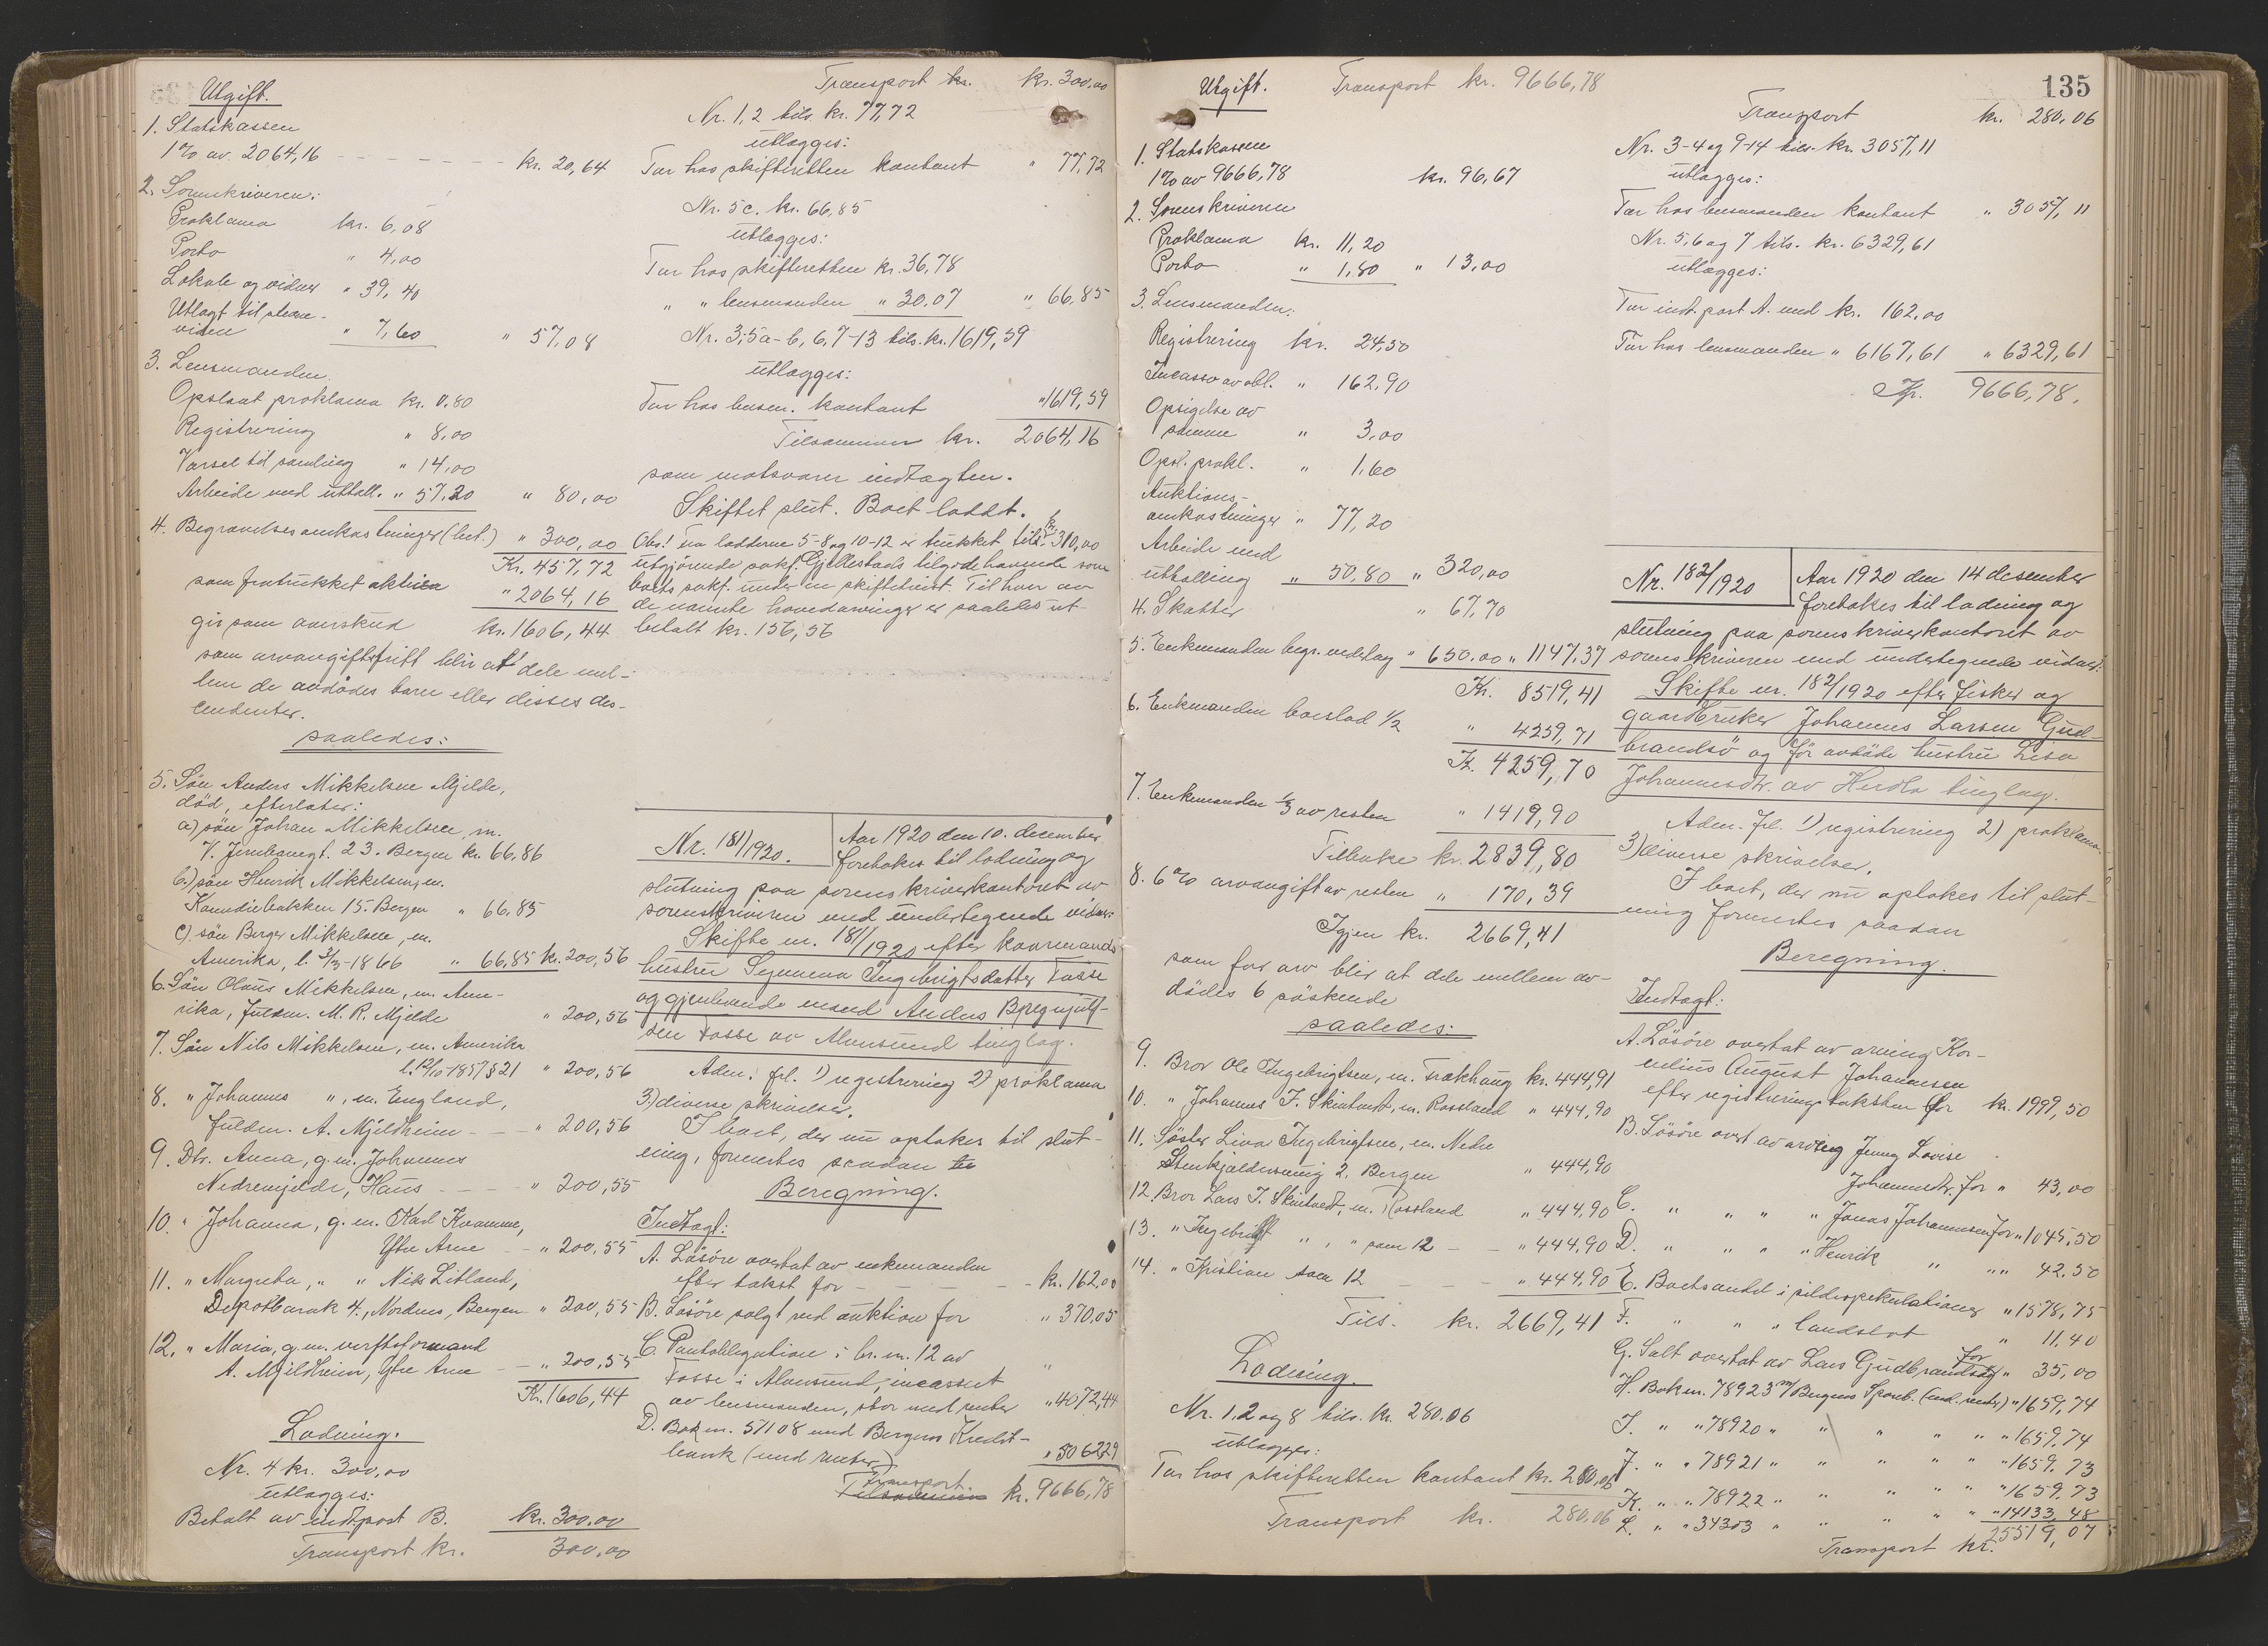 Utgift.
1. Statskassen
1% av 2064,16 - - - - - - kr. 20,64
2. Sorenskriveren:
Proklama kr. 6,08
Porto " 4,00
Lokale og vidner " 39,40
Utlagt til skue-
viden " 7,60 " 57,08
3. Lensmanden
Opslaat proklama kr. 0,80
Registrering " 8,00
Varsel til samling " 14,00
Arbeide med utball. " 57,20 " 80,00
4. Begravelsesomkostninger (bet.) " 300,00
Kr. 457,72
som fratrukket aktiva " 2064,16
gir som overskud kr. 1606,44
som arveavgiftsfritt blir at dele mel-
lem de avdødes barn eller disses des-
cendenter.
saaledes:
5. Søn Anders Mikkelsen Mjelde,
død, efterlater:
a) søn Johan Mikkelsen, m.
V. Jernbanegt. 23. Bergen kr. 66,86
b.) søn Henrik Mikkelsen, m.
Kanediebakken 15. Bergen " 66,85
c) søn Berger Mikkelsen, m.
Amerika, 1866 " 66,85 kr. 200,56
6. Søn Olaus Mikkelsen, m. Ame-
rika, fuldm. M. R. Mjelde " 200,56
7. Søn Nils Mikkelsen, m. Amerika
l. 12/10-1857 § 21 " 200,56
8. " Johannes ", m. England,
fuldm. A. Mjeldheim - - " 200,56
9. Dtr. Anna, g.m. Johannes
Nedremjelde, Haus - - - " 200,55
10. " Johanna, g.m. Karl Kvamme,
Ytre Arne - " 200,55
11. " Margreta, " " Nils Litland,
Depotbarak 4, Nordnes, Bergen " 200,55
12. " Maria, g.m. verftsformand
A. Mjeldheim, Ytre Arne - " 200,55
Kr. 1606,44
Lodning.
Nr. 4 kr. 300,00
utlægges:
Betalt av indt.post B. kr. 300,00
Transport kr. 300,00
Transport kr. kr. 300,00
Nr. 1, 2 tils. kr. 77,72
utlægges:
Tar hos skifteretten kontant " 77,72
Nr. 5c. kr. 66,85
utlægges:
Tar hos skifteretten kr. 36,78
" " lensmanden " 30,07 " 66,85
Nr. 3, 5a-b, 6, 7-13 tils. kr. 1619,59
utlægges:
Tar hos lensm. kontant " 1619,59
Tilsammen kr. 2064,16
som motsvarer indtægten.
Skiftet slut. Boet loddt.
Obs! Fra lodderne 5-8 og 10-12 er trukket tils. kr. 310,00
utgjørende sakf. Gjellestads tilgodehavende som
boets sakf. under en skiftetvist. Til hver av
de nævnte hovedarvinger er saaledes ut-
betalt kr. 156,56
Nr. 181/1920. Aar 1920 den 10. december
foretokes til lodning og
slutning paa sorenskriverkontoret av
sorenskriveren med undertegnede vidner:
Skifte nr. 181/1920 efter kaarmands
hustru Synneva Ingebrigtsdatter Fosse
og gjenlevende mand Anders Brynjulf-
sen Fosse av Alversund tinglag.
Adm. frl. 1) registrering 2) proklama
3) diverse skrivelser.
I boet, der nu optokes til slut-
ning, formentes saadan
Beregning.
Indtægt:
A. Løsøre overtat av enkemanden
efter takst for - - - - - kr. 162,00
B. Løsøre solgt ved auktion for " 370,05
C. Pantobligation i br. nr. 12 av "
Fosse i Alversund, incassert
av lensmanden, stor med renter " 4072,44
D. Bok nr. 51108 med Bergens Kredit-
bank (med renter) " 5062,29
Transport
Tilsammen kr. 9666,78
135
Utgift. Transport kr. 9666,78
1. Statskassen
1% av 9666,78 kr. 96,67
2. Sorenskriveren
Proklama kr. 11,20
Porto " 1,80 " 13,00
3. Lensmanden:
Registrering kr. 24,50
Incasso av obl. " 162,90
Opsigelse av
samme " 3,00
Opsl. prokl. " 1,60
Auktions-
omkostninger " 77,20
Arbeide med
utballing " 50,80 " 320,00
4. Skatter " 67,70
5. Enkemanden begr. vederlag " 650,00 " 1147,37
Kr. 8519,41
6. Enkemanden boeslod 1/2 " 4259,71
Kr. 4259,70
7. Enkemanden 1/3 av resten " 1419,90
Tilbake kr. 2839,80
8. 6% arveavgift av resten " 170,39
Igjen kr. 2669,41
som for arv blir at dele mellem av-
dødes 6 søskende
saaledes:
9. Bror Ole Ingebrigtsen, m. Frækhaug kr. 444,91
10. " Johannes I. Skintveit, m. Rossland " 444,90
11. Søster Lina Ingebrigtsen, m. Nedre
Stenkjeldersmug 2, Bergen " 444,90
12. Bror Lars I. Skintvedt, m. Rossland " 444,90
13. " Ingebrigt " , " som 12 - - " 444,90
14. " Kristian som 12 - - - " 444,90
Tils. kr. 2669,41
Lodning.
Nr. 1, 2 og 8 tils. kr. 280,06
utlægges:
Tar hos skifteretten kontant kr. 280,06
Transport kr. 280,06
Transport kr. 280,06
Nr. 3-4 og 9-14 tils. kr. 3057,11
utlægges:
Tar hos lensmanden kontant " 3057,11
Nr. 5, 6 og 7 tils. kr. 6329,61
utlægges:
Tar indt. post A. med kr. 162,00
Tar hos lensmanden " 6167,61 " 6329,61
Kr. 9666,78.
Nr. 182/1920 Aar 1920 den 14 desember
foretokes til lodning og
slutning paa sorenskriverkontoret av
sorenskriveren med undertegnede vidner:
Skifte nr. 182/1920 efter fisker og
gaardbruker Johannes Larsen Gud-
brandsø og før avdøde hustru Lisa
Johannesdtr. av Herdla tinglag.
Adm. frl. 1) registrering 2) proklama
3) diverse skrivelser.
I boet, der nu optokes til slut-
ning formentes saadan
Beregning.
Indtægt:
A. Løsøre overtat av arving Kor-
nelius August Johannesen
efter registreringstaksten for kr. 1999,50
B. Løsøre overt. av arving Jenny Lovise
Johannesdtr. for " 43,00
C. " " " " Jonas Johannesen for " 1045,50
D. " " " " Henrik " " " 42,50
E. Boets andel i sildespekulationer " 1578,75
F. " " " landslot " 11,40
G. Salt overtat av Lars Gudbrandsøy for " 35,00
H. Bok nr. 78923 m/ Bergens Spareb. (med renter) " 1659,74
I. " " 78920 " " " " " " 1659,74
J. " " 78921 " " " " " " 1659,73
K. " " 78922 " " " " " " 1659,73
L. " " 34303 " " " " " " 14133,48
Transport kr. 25519,07